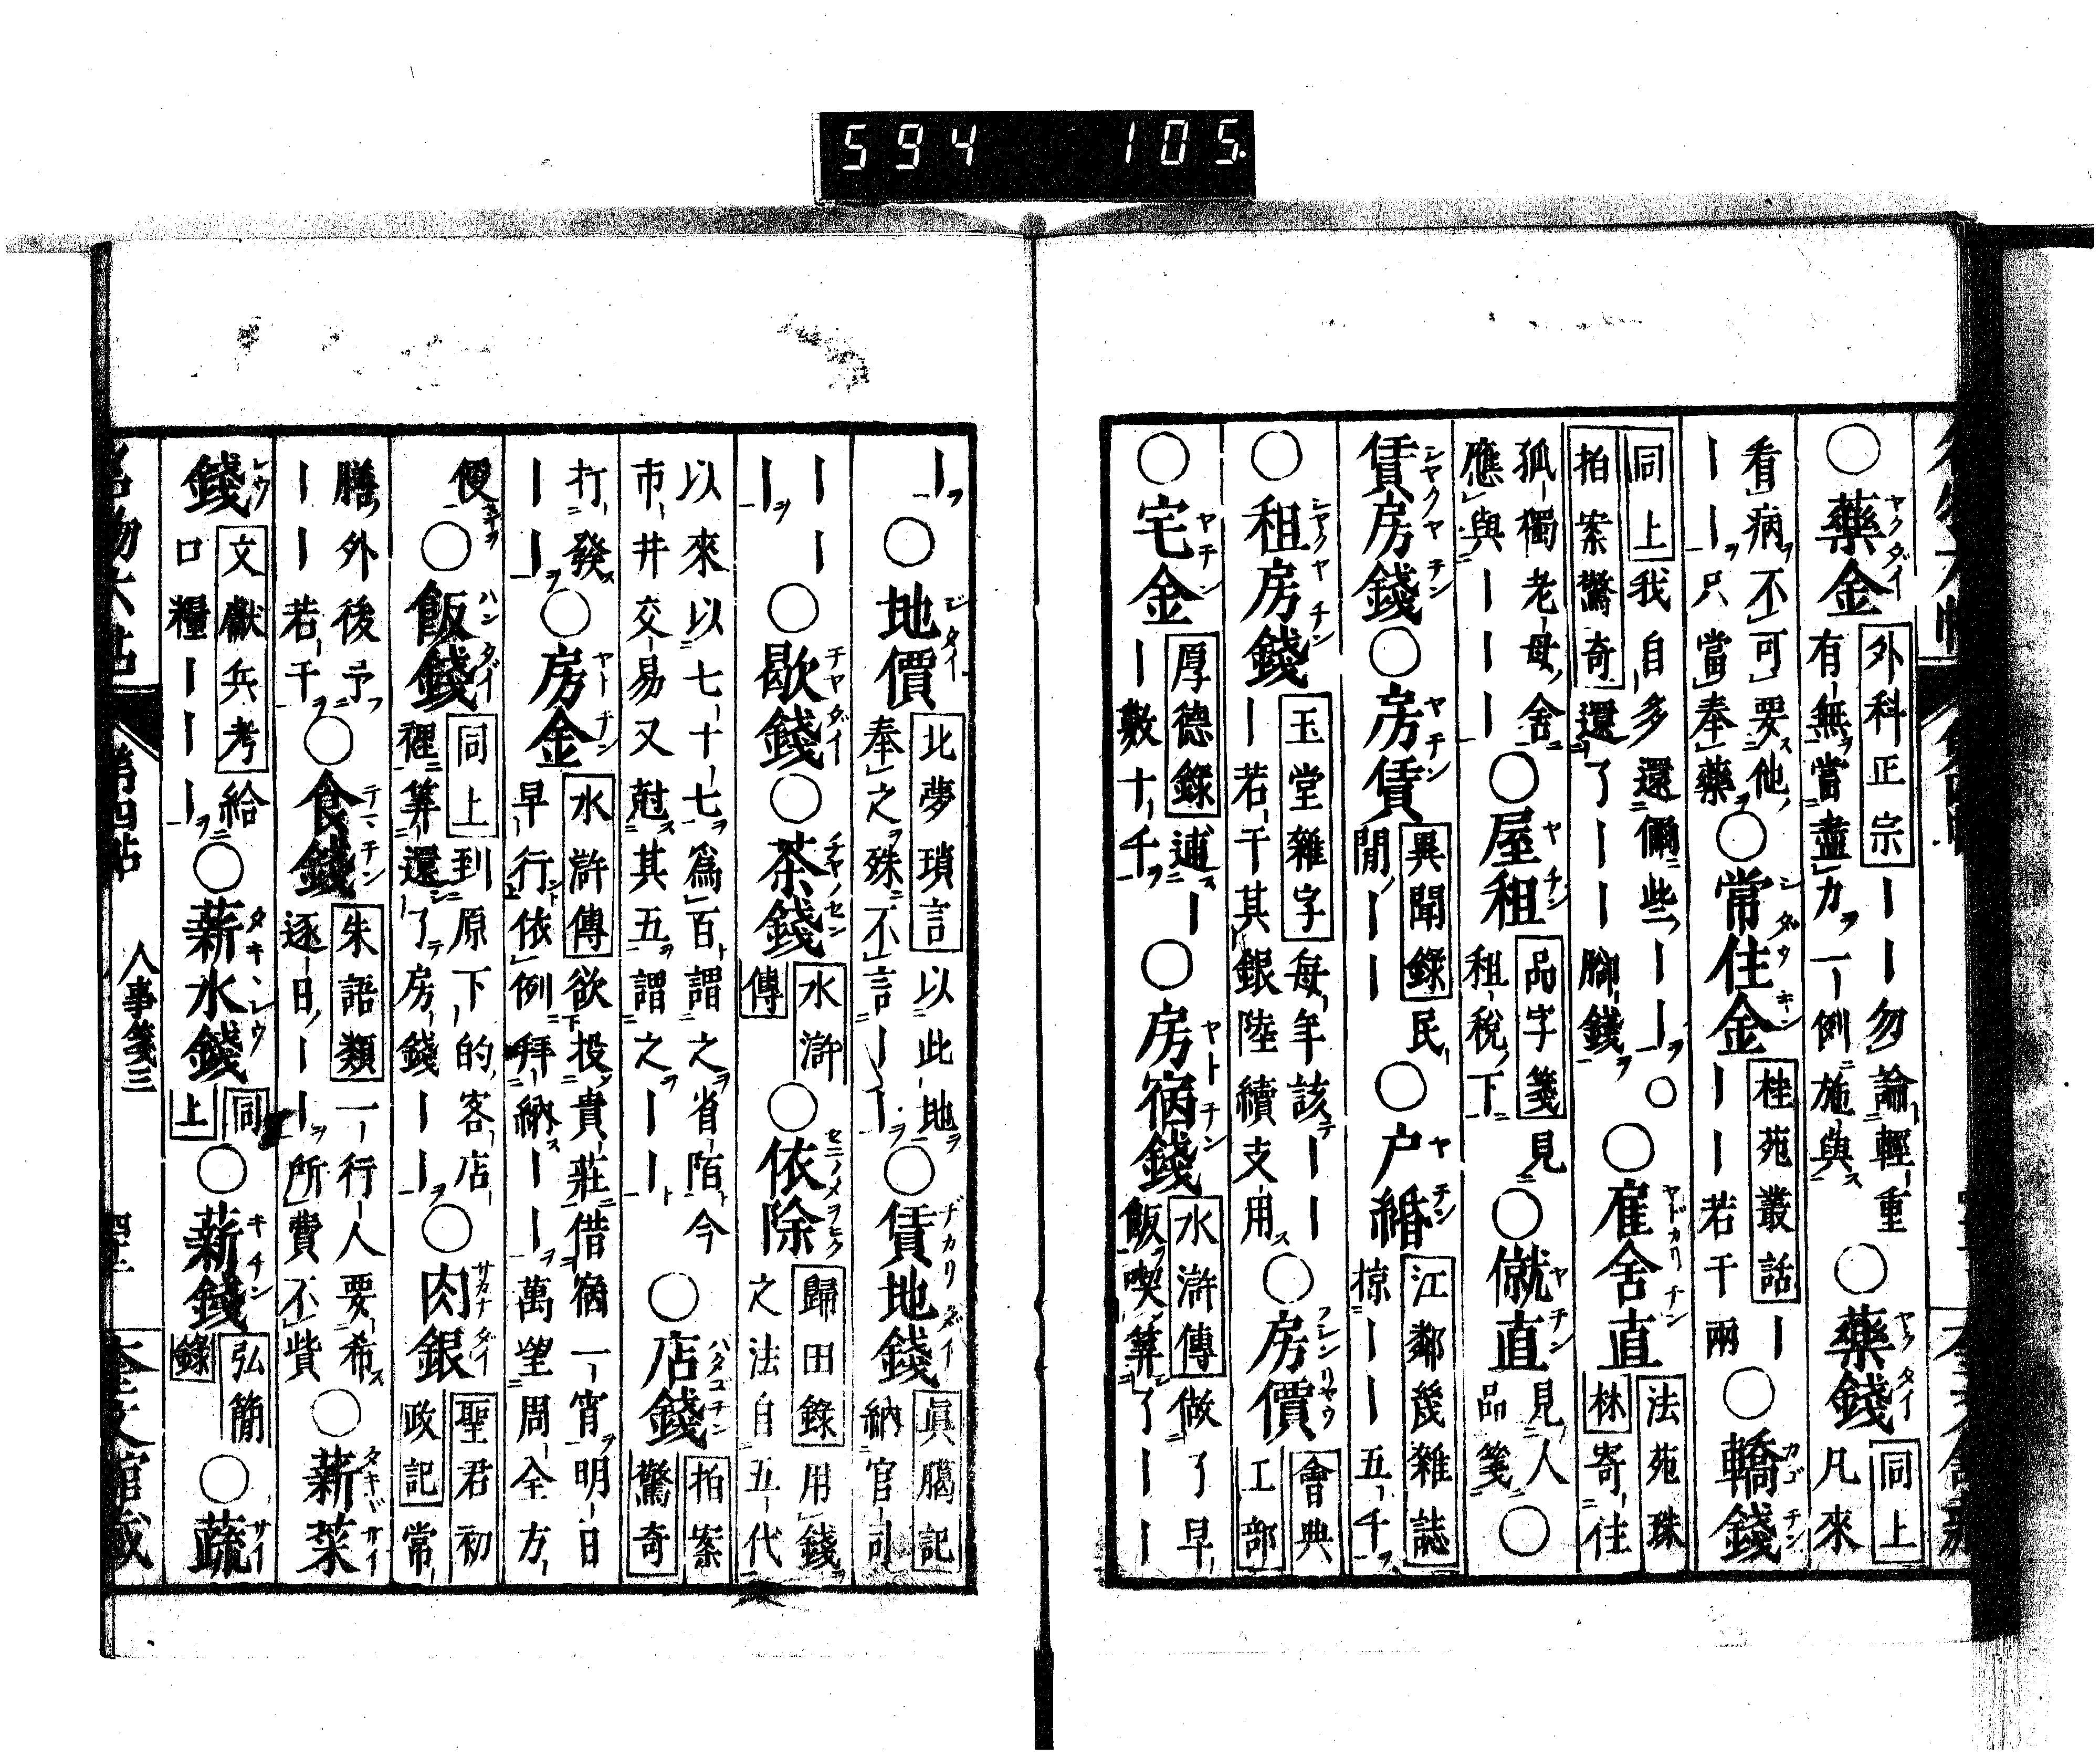 594 105
○藥金 外科正宗 ーー勿論輕重有無當盡力一例施與 ○藥錢 同上 凡來
看病不可要他ーー只當奉藥 ○常住金 桂苑叢話 ーーー若干兩 ○轎錢
同上 我自多還儞些ーー○拍案驚奇 還了ーー脚錢 ○雇舍直 法苑珠林 寄住
孤獨老母舍應與ーーー ○屋租 品字箋 見租稅下 ○僦直 見人品箋 ○
賃房錢 ○房賃 異聞錄 民間ーー ○戶緡 江鄰幾雜誌 掠ーー五千
○租房錢 玉堂雜字 每年該ーーー若干其銀陸續支用 ○房價 會典工部
○宅金 厚德錄 逋ーー數十千 ○房宿錢 水滸傳 做了早飯喫算了ーー
ー ○地價 北夢瑣言 以此地奉之殊不言ーー ○賃地錢 眞臘記 納官司
ーーー ○歇錢 ○茶錢 水滸傳 ○依除 歸田錄 用錢之法自五代
以來以七十七爲百謂之省陌今市井交易又尅其五謂之ーー ○店錢 拍案驚奇
打發ーー ○房金 水滸傳 欲投貴莊借宿一宵明日早行依例拜納ーー萬望周全方
便 ○飯錢 同上 到原下的客店裡算還了房錢ーー ○肉銀 聖君初政記 常
膳外後予ーー若干 ○食錢 朱語類 一行人要希逐日ーー所費不貲 ○薪菜
錢 文獻兵考 給口糧ーーー ○薪水錢 同上 ○薪錢 弘簡錄 ○蔬
第四帖 人事箋三